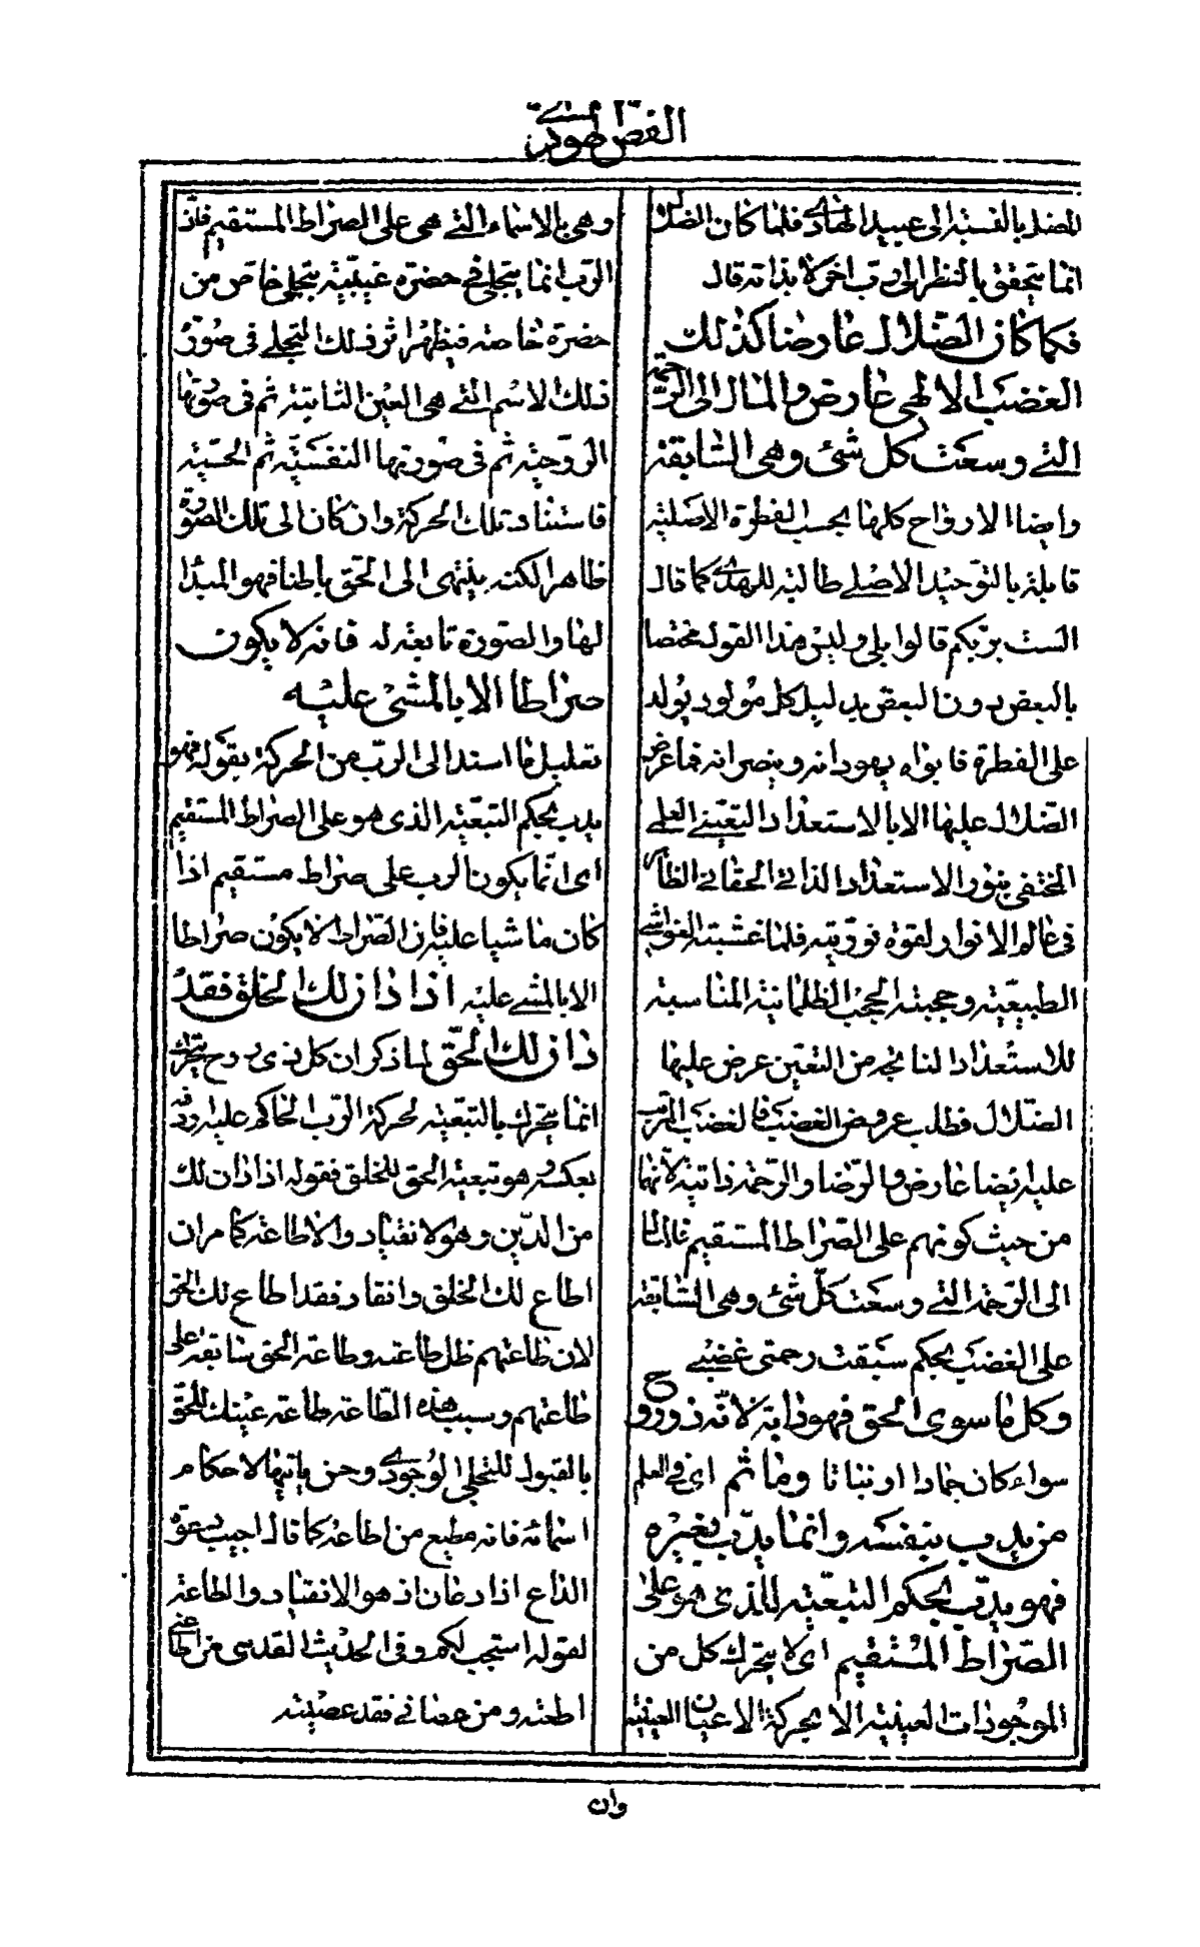 الفص الهودي
المضل بالنسبة الى عبيد الهادي فلما كان الضلال
انما يتحقق بالنظر الى رب اخر لا بذاته قال
فكما كان الضلال عارضا كذلك
الغضب الالهي عارض والمال الى الرحمة
التي وسعت كل شئ وهى السابقة
وايضا الارواح كلها بحسب الفطرة الاصلية
قابلة بالتوحيد الاصلي طالبة للهدى كما قال
الست بربكم قالوا بلى وليس هذا القول مختصا
بالبعض دون البعض بدليل كل مولود يولد
على الفطرة فابواه يهودانه وينصرانه فما عرض
الضلال عليها الا بالاستعداد التعيني العلمي
المختفي بنور الاستعداد الذاتي الحقاني الظاهر
في عالم الانوار لقوة نوريته فلما غشيته الغواشي
الطبيعية وحجبته الحجب الظلمانية المناسبة
للاستعداد الناتج من التعين عرض عليها
الضلال فطلب عروض الغضب فالغضب المرتب
عليه ايضا عارض والرضا والرحمة ذاتية لانهما
من حيث كونهم على الصراط المستقيم فالمال
الى الرحمة التي وسعت كل شئ وهى السابقة
على الغضب بحكم سبقت رحمتى غضبي
وكل ما سوى الحق فهو دابة لانه ذو روح
سواء كان جمادا او نباتا وما ثم اى في العلم
من يدب بنفسه وانما يدب بغيره
فهو يدب بحكم التبعية للذى هو على
الصراط المستقيم اى لا يتحرك كل من
الموجودات العينية الا بحركة الاعيان الغيبية
وهي بالاسماء التي هى على الصراط المستقيم فان
الرب انما يتجلى في حضرة غيبية بتجلي خاص من
حضرة خاصة فيظهر اثر ذلك التجلي فى صورة
ذلك الاسم التي هى العين الثابتة ثم فى صورتها
الروحية ثم فى صورتها النفسية ثم الحسية
فاستناد تلك الحركة وان كان الى تلك الصورة
ظاهرا لكنه ينتهى الى الحق باطنا فهو المبدا
لها والصورة تابعة له فانه لا يكون
صراطا الا بالمشى عليه
تعليل ما اسند الى الرب من الحركة بقوله فهو
يدب بحكم التبعية الذى هو على الصراط المستقيم
اى انما يكون الرب على صراط مستقيم اذا
كان ماشيا عليه فان الصراط لا يكون صراطا
الا بالمشي عليه اذا دان لك الخلق فقد
دان لك الحق لما ذكر ان كل ذى روح يتحرك
انما يتحرك بالتبعية لحركة الرب الحاكم عليه
بعكسه وهو تبعية الحق للخلق فقوله اذا دان لك
من الدين وهو الانقياد والاطاعة كما مر ان
اطاع لك الخلق وانقاد فقد اطاع لك الحق
لان طاعتهم ظل طاعته وطاعة الحق سابقة على
طاعتهم وسبب هذه الطاعة طاعة عينك للحق
بالقبول للتجلي الوجودي وحسن تاتيها لاحكام
اسمائه فانه مطيع من اطاعه كما قال اجيب دعوة
الداع اذا دعان اذ هو الانقياد والطاعة
لقوله استجب لكم وفى الحديث القدسى من اطاعني
اطعته ومن عصاني فقد عصيته
وان